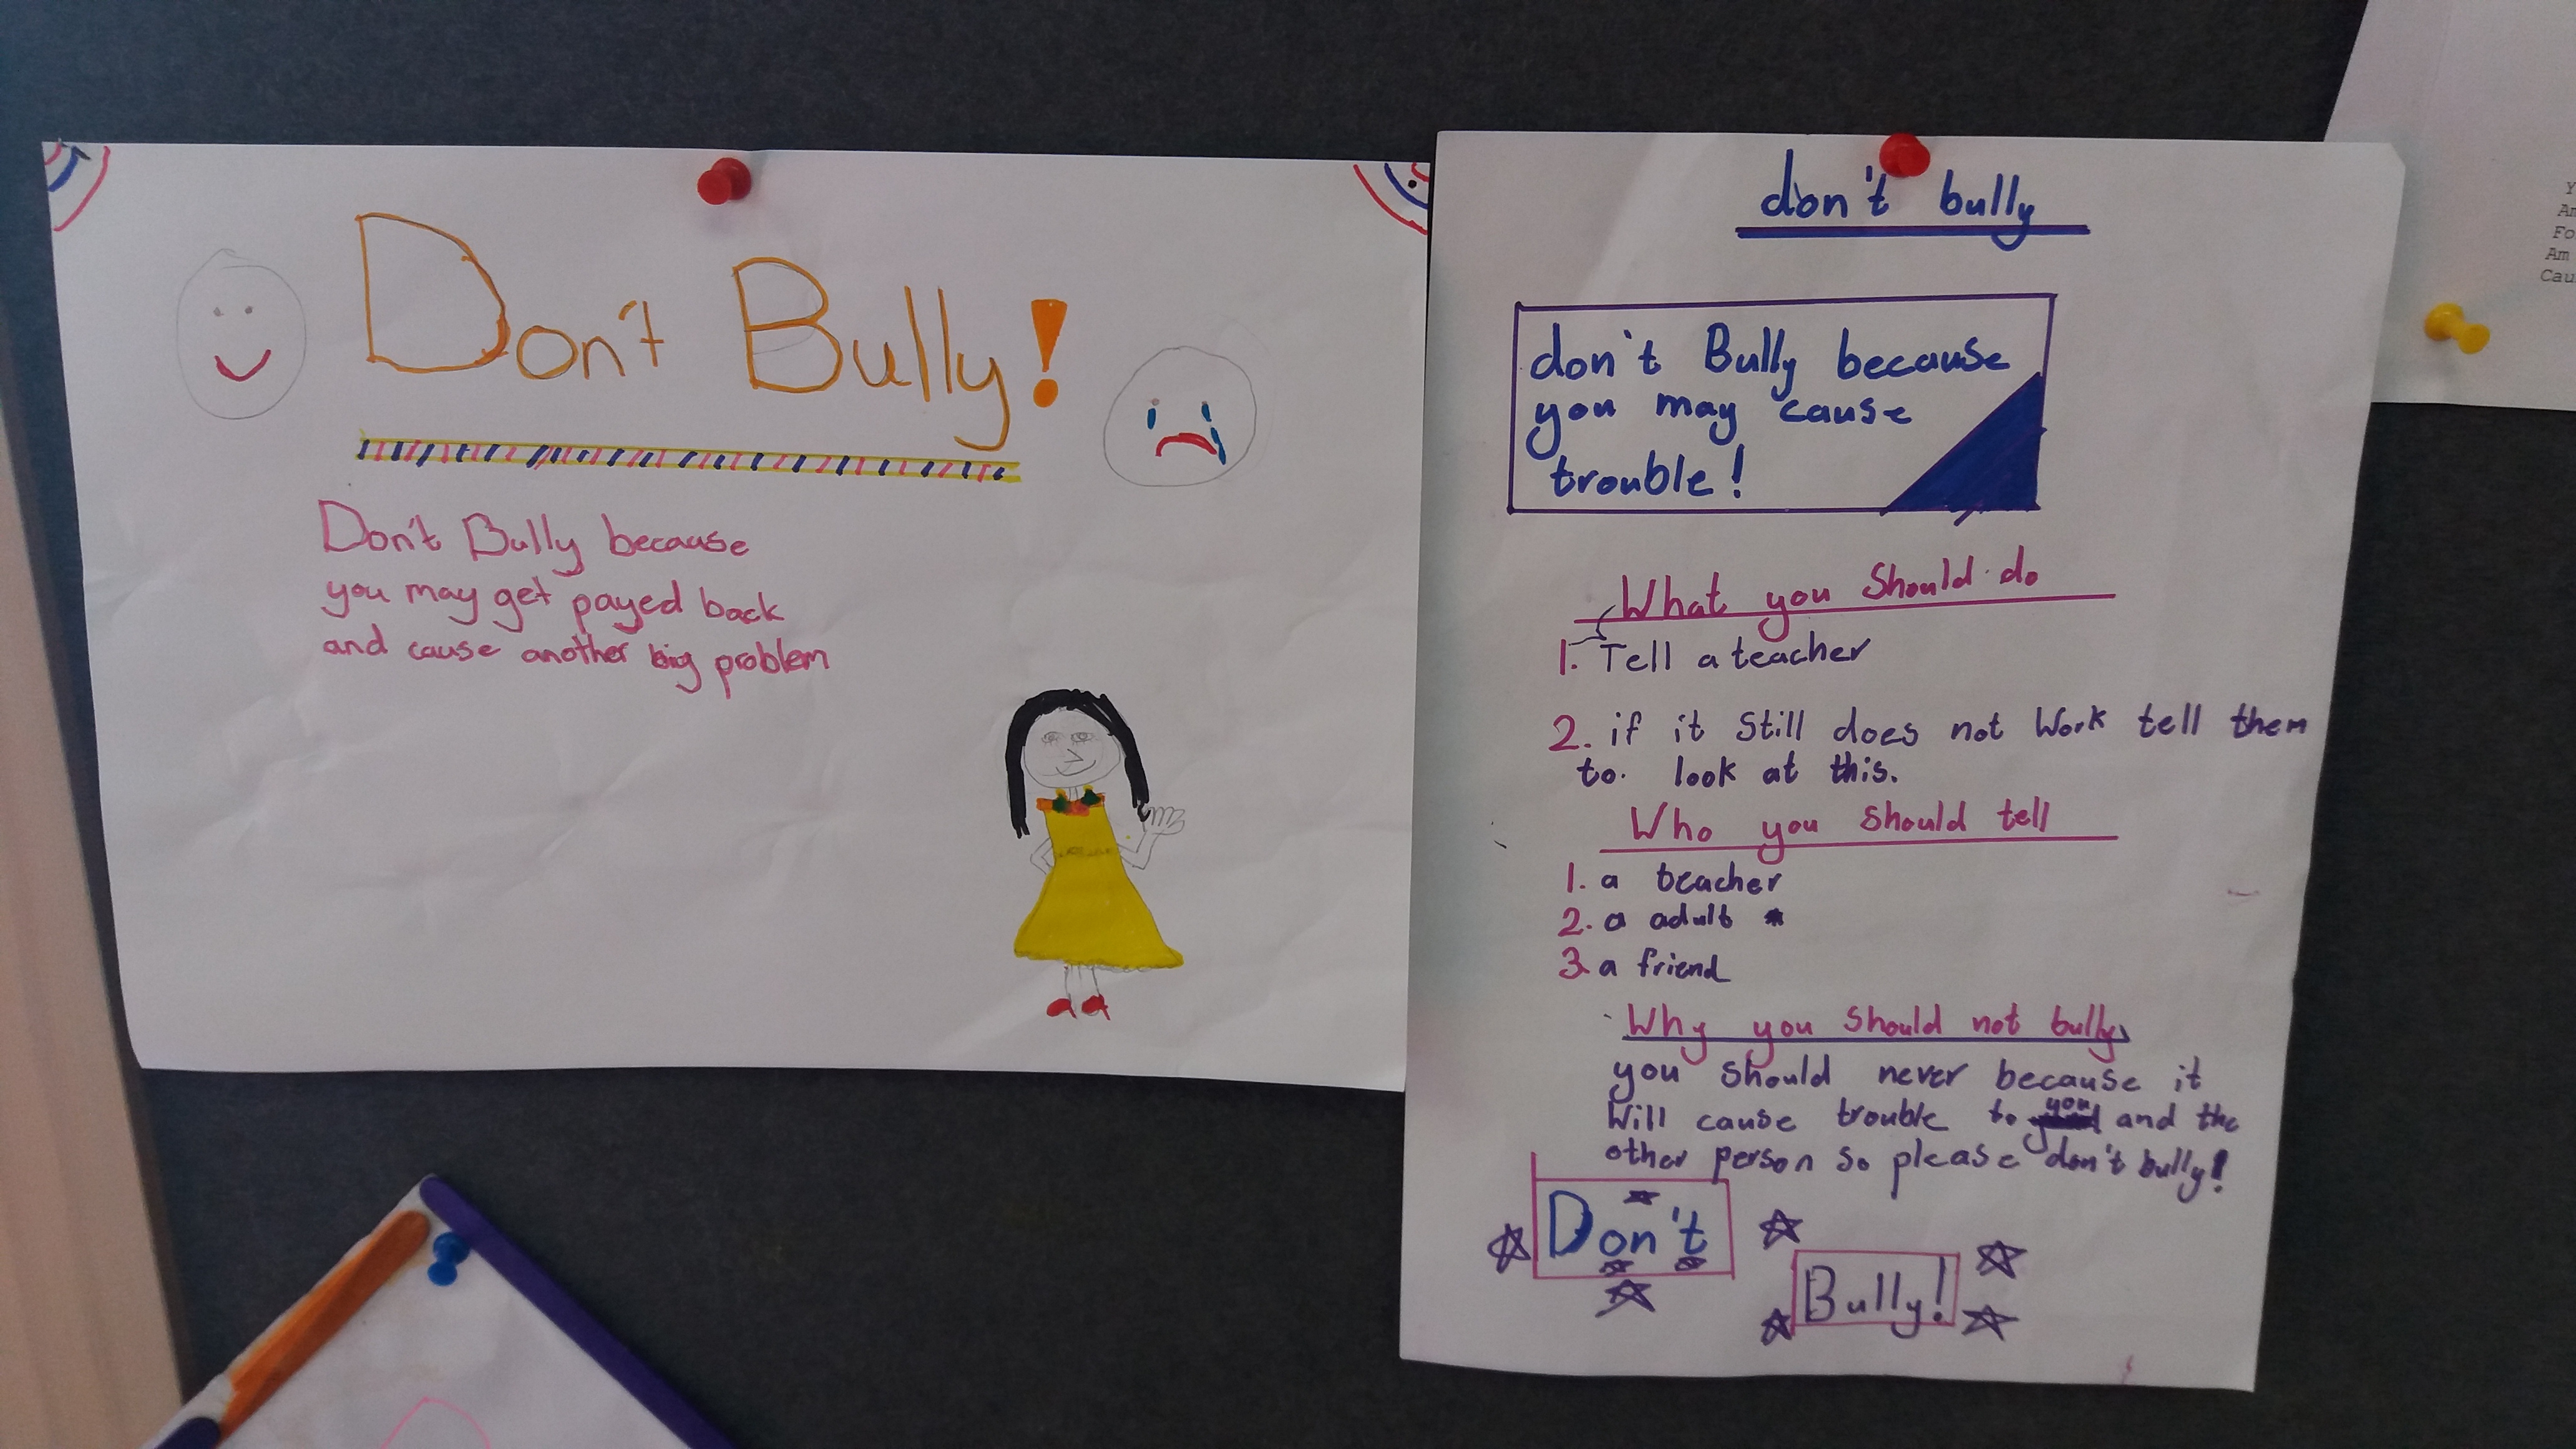 Don't Bully!
Don't Bully because
you may get payed back
and cause another big problem
don't bully
don't Bully because
you may cause
trouble!
What you Should do
1. Tell a teacher
2. if it Still does not Work tell them
to. look at this.
Who you Should tell
1. a teacher
2. a adult
3. a friend
Why you Should not bully
you Should never because it
Will cause trouble to you and the
other person so please don't bully!
Don't
Bully!
Am